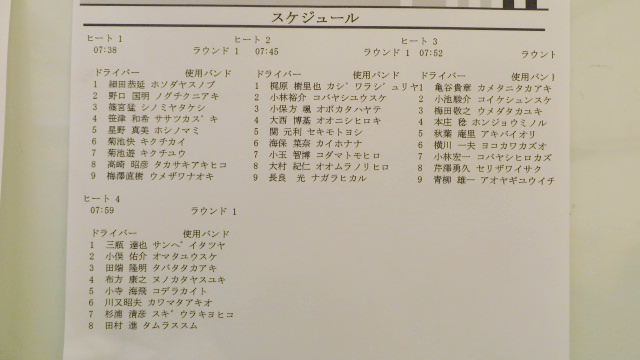 スケジュール
ヒート 1
07:38 ラウンド 1
ドライバー 使用バンド
1 細田恭延 ホソダヤスノブ
2 野口 国明 ノグチクニアキ
3 篠宮猛 シノミヤタケシ
4 笹津 和希 ササツカズ゛キ
5 星野 真美 ホシノマミ
6 菊池快 キクチカイ
7 菊池遊 キクチユウ
8 高崎 昭彦 タカサキアキヒコ
9 梅澤直樹 ウメザワナオキ
ヒート 2
07:45 ラウンド 1
ドライバー 使用バンド
1 梶原 樹里也 カシ゛ワラシ゛ュリヤ
2 小林裕介 コバヤシユウスケ
3 小保方 颯 オボカタハヤテ
4 大西 博基 オオニシヒロキ
5 関 元利 セキモトヨシ
6 海保 菜奈 カイホナナ
7 小玉 智博 コダマトモヒロ
8 大村 紀仁 オオムラノリヒロ
9 長良 光 ナガラヒカル
ヒート 3
07:52 ラウント
ドライバー 使用バン
1 亀谷貴章 カメタニタカアキ
2 小池駿介 コイケシュンスケ
3 梅田敬之 ウメダタカユキ
4 本庄 稔 ホンジョウミノル
5 秋葉 庵里 アキバイオリ
6 横川 一夫 ヨコカワカズオ
7 小林宏一 コバヤシヒロカズ
8 芹澤勇久 セリザワイサク
9 青柳 雄一 アオヤギユウイチ
ヒート 4
07:59 ラウンド 1
ドライバー 使用バンド
1 三瓶 達也 サンヘ゜イタツヤ
2 小俣 佑介 オマタユウスケ
3 田端 隆明 タバタタカアキ
4 布方 康之 ヌノカタヤスユキ
5 小寺 海飛 コデラカイト
6 川又昭夫 カワマタアキオ
7 杉浦 清彦 スギ゛ウラキヨヒコ
8 田村 進 タムラススム